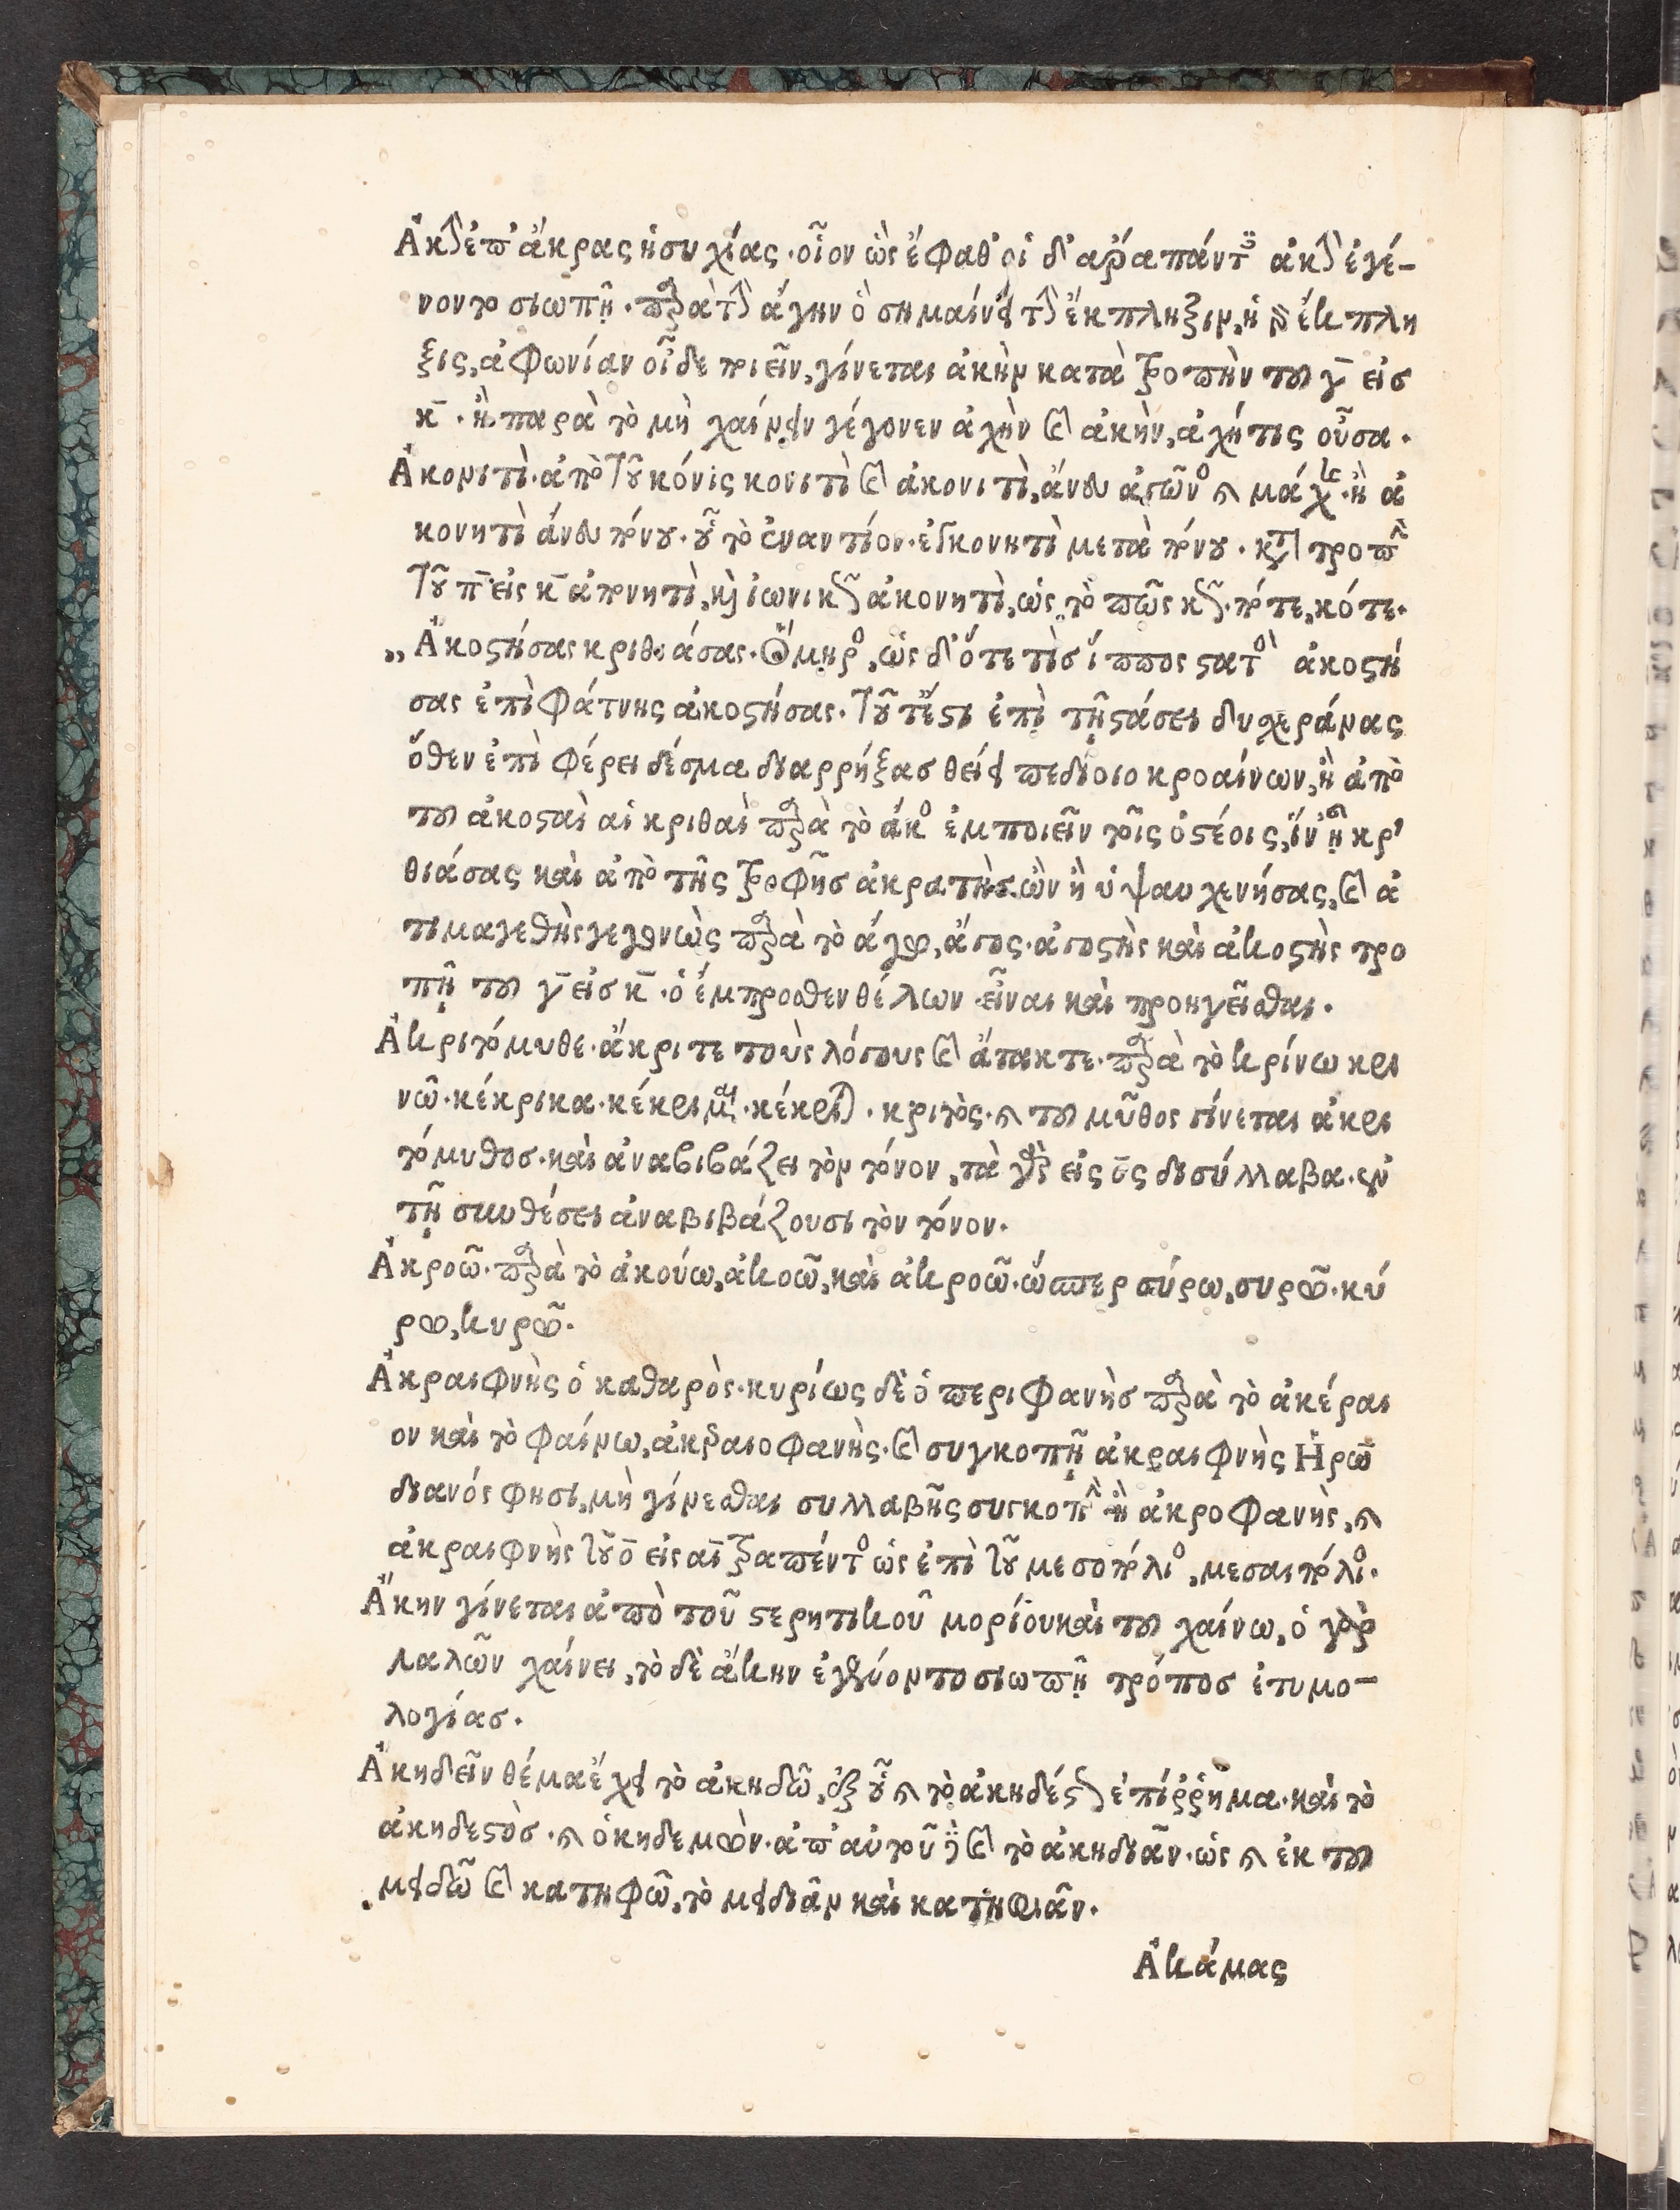 Ἀκὴν ἐπ' ἄκρας ἡσυχίας· οἷον ὣς ἔφαθ' οἱ δ' ἄρα πάντες ἀκὴν ἐγέ-
νοντο σιωπῇ· παρὰ τὴν ἄγην ὃ σημαίνει τὴν ἔκπληξιν, ἡ δὲ ἔκπλη
ξις, ἀφωνίαν οἶδε ποιεῖν, γίνεται ἀκὴν κατὰ τροπὴν τοῦ γ̄ εἰσ
κ̄· ἢ παρὰ τὸ μὴ χαίνειν γέγονεν ἀχὴν καὶ ἀκὴν, ἀχήτις οὖσα.
Ἀκονιτὶ· ἀπὸ τοῦ κόνις κονιτὶ καὶ ἀκονιτὶ, ἄνευ ἀγῶνος καὶ μάχης· ἢ ἀ
κονητὶ ἄνευ πόνου· οὗ τὸ ἐναντίον· εὐκονητὶ μετὰ πόνου· κατὰ τροπὴν
τοῦ π̄ εἰς κ̄ ἀπονητὶ, καὶ ἰωνικῶς ἀκονητὶ, ὡς τὸ πῶς κῶς· πότε, κότε.
„ Ἀκοστήσας κριθιάσας· Ὅμηρος, ὡς δ' ὅτε τὶσ ἵππος στατὸς ἀκοστή
σας ἐπὶ φάτνης ἀκοστήσας· τουτέστι ἐπὶ τῇ στάσει δυσχεράνας
ὅθεν ἐπὶ φέρει δέσμα διαρρήξασ θείει πεδίοιο κροαίνων, ἢ ἀπὸ
τοῦ ἀκοσταὶ αἱ κριθαὶ παρὰ τὸ ἄκος ἐμποιεῖν τοῖς ὀστέοις, ἵν' ᾖ κρι
θιάσας καὶ ἀπὸ τῆς τροφῆσ ἀκρατὴς ὢν ἢ ὑψαυχενήσας, καὶ ἀ
τιμαγεθὴς γεγονὼς παρὰ τὸ ἄγω, ἄγος· ἀγοστὴς καὶ ἀκοστὴς τρο
πῇ τοῦ γ̄ εἰσ κ̄· ὁ ἔμπροσθεν θέλων εἶναι καὶ προηγεῖσθαι.
Ἀκριτόμυθε· ἄκριτε τοὺς λόγους καὶ ἄτακτε· παρὰ τὸ κρίνω κρι
νῶ· κέκρικα· κέκριμαι· κέκριται· κριτὸς· καὶ τοῦ μῦθος γίνεται ἀκρι
τόμυθοσ· καὶ ἀναβιβάζει τὸν τόνον, τὰ γὰρ εἰς ος δισύλλαβα· ἐν
τῇ συνθέσει ἀναβιβάζουσι τὸν τόνον.
Ἀκροῶ· παρὰ τὸ ἀκούω, ἀκοῶ, καὶ ἀκροῶ· ὥσπερ σύρω, συρῶ· κύ
ρω, κυρῶ.
Ἀκραιφνὴς ὁ καθαρὸς· κυρίως δὲ ὁ περιφανὴσ παρὰ τὸ ἀκέραι
ον καὶ τὸ φαίνω, ἀκεραιοφανὴς· καὶ συγκοπῇ ἀκραιφνὴς Ἡρω
διανός φησι, μὴ γίνεσθαι συλλαβῆς συγκοπὴν ἢ ἀκροφανὴς, καὶ
ἀκραιφνὴς τοῦ ο̄ εἰς αῑ τραπέντος ὡς ἐπὶ τοῦ μεσοπόλιος, μεσαιπόλιος.
Ἄκην γίνεται ἀπὸ τοῦ στερητικοῦ μορίου καὶ τοῦ χαίνω, ὁ γὰρ
λαλῶν χαίνει, τὸ δὲ ἄκην ἐγένοντο σιωπῇ τρόποσ ἐτυμο-
λογίασ.
Ἀκηδεῖν θέμα ἔχει τὸ ἀκηδῶ, ἐξ οὗ καὶ τὸ ἀκηδέστως ἐπίρρημα· καὶ τὸ
ἀκηδεστὸσ· καὶ ὁ κηδεμὼν· ἀπ' αὐτοῦ δὲ καὶ τὸ ἀκηδιᾶν· ὡς καὶ ἐκ τοῦ
μειδῶ καὶ κατηφῶ, τὸ μειδιᾶν καὶ κατηφιᾶν.
Ἀκάμας